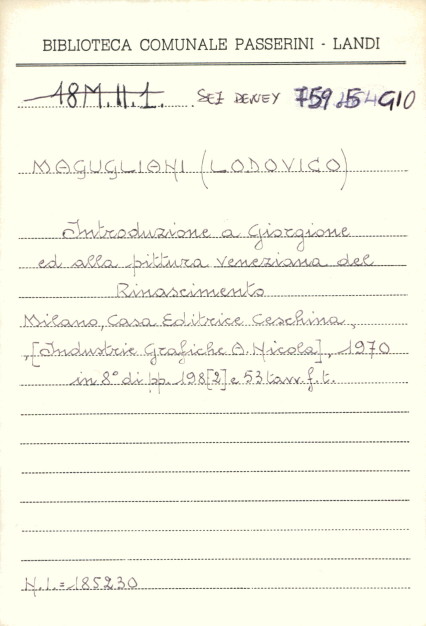 BIBLIOTECA COMUNALE PASSERINI - LANDI
18M.II.1. SEZ DEWEY 759.54 GIO
MAGUGLIANI (LODOVICO)
Introduzione a Giorgione
ed alla pittura veneziana del
Rinascimento
Milano, Casa Editrice Ceschina,
,[Industrie Grafiche A. Nicola], 1970
in 8° di pp. 198[2] e 53 tavv. f. t.
N.I.= 185230